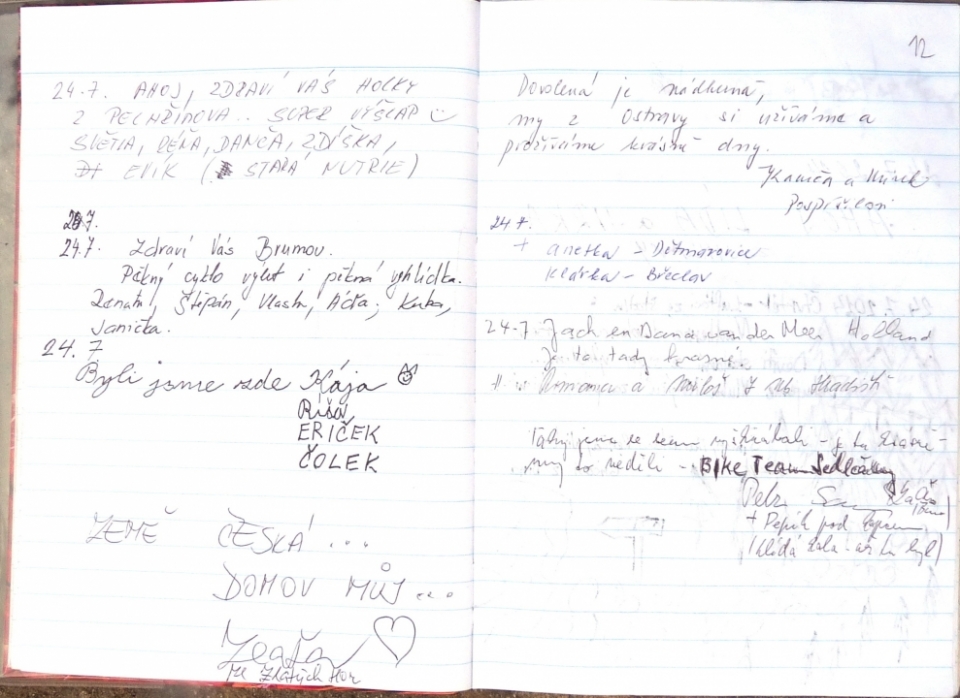 24.7. AHOJ, ZDRAVÍ VÁS HOLKY
Z PELHŘIMOVA.. SUPER VÝŠLAP
SVĚTLA, PÉŇA, DANČA, ZDÍŠKA,
EVÍK (STARÁ NUTRIE)
24.7. Zdraví Vás Brumov.
Pěkný cyklo výlet i pěkná vyhlídka.
Renata, Štěpán, Vlasta, Kuba,
Janička.
24. 7
Byli jsme zde Kája
Ríša,
ERIČEK
ČOLEK
ZEMĚ ČESKÁ ...
DOMOV MŮJ ...
Zlaťa
ze Zlatých Hor
12
Dovolená je nádherná,
my z Ostravy si užíváme a
prožíváme krásné dny.
Kamča a Mirek
Pospíšilovi
24.7.
+ Anetka - Dětmarovice
Klárka - Břeclav
24.7 Jach en Dana van der Meer Holland
Je to tady krásné.
a Miloš z Hradiště
Taky jsme se sem - je tu krásně -
BIKE Team Sedlčany
Petr
+ Pepík pod